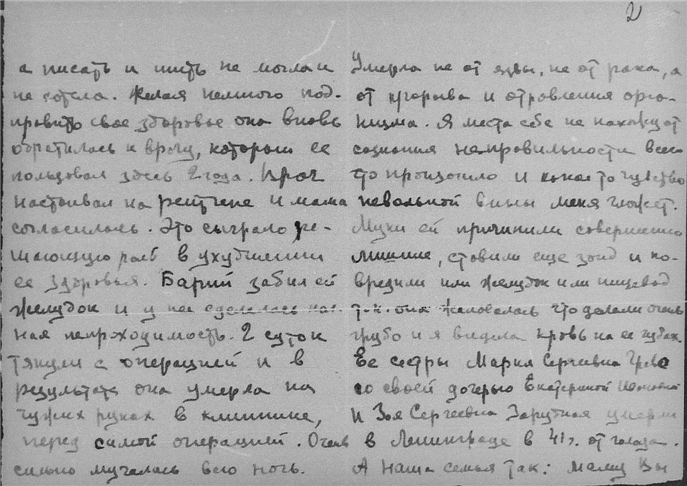 2
а писать и шить не могла и
не хотела. Желая немного под-
править свое здоровье она вновь
обратилась к врачу, который ее
пользовал здесь 2 года. Врач
настаивал на рентгене и мама
согласилась. Это сыграло ре-
шающую роль в ухудшении
ее здоровья. Барий забил ей
желудок и у нее сделалась пол-
ная непроходимость. 2 суток
тянули с операцией и в
результате она умерла на
чужих руках в клинике,
перед самой операцией. Очень
сильно мучалась всю ночь.
Умерла не от язвы, не от рака, а
от и отравления орга-
низма. Я места себе не нахожу от
сознания неправильности всего
что произошло и какое то чувство
невольной вины меня гложет.
Муки ей причинили совершенно
лишние, ставили еще зонд и по-
вредили или желудок или пищевод
т.к. она жаловалась что делали очень
грубо и я видела кровь на ее губах.
Ее сестры Мария Сергеевна
со своей дочерью Екатериной
и Зоя Сергеевна Зарубная умерли
в Ленинграде в 41 г. от голода.
А наша семья так: Мамы Вы